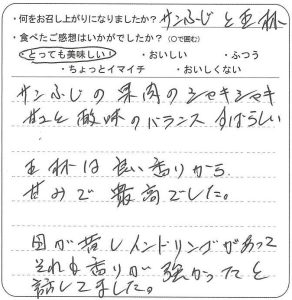 ・何をお召し上がりになりましたか？サンふじと王林
・食べたご感想はいかがでしたか？（○で囲む）
・とっても美味しい！ ・おいしい ・ふつう
・ちょっとイマイチ ・おいしくない
サンふじの果肉のシャキシャキ
甘さと酸味のバランスすばらしい
王林は良い香りがら
甘みで最高でした。
母が昔しインドリンゴがあって
それも香りが強かったと
話してました。